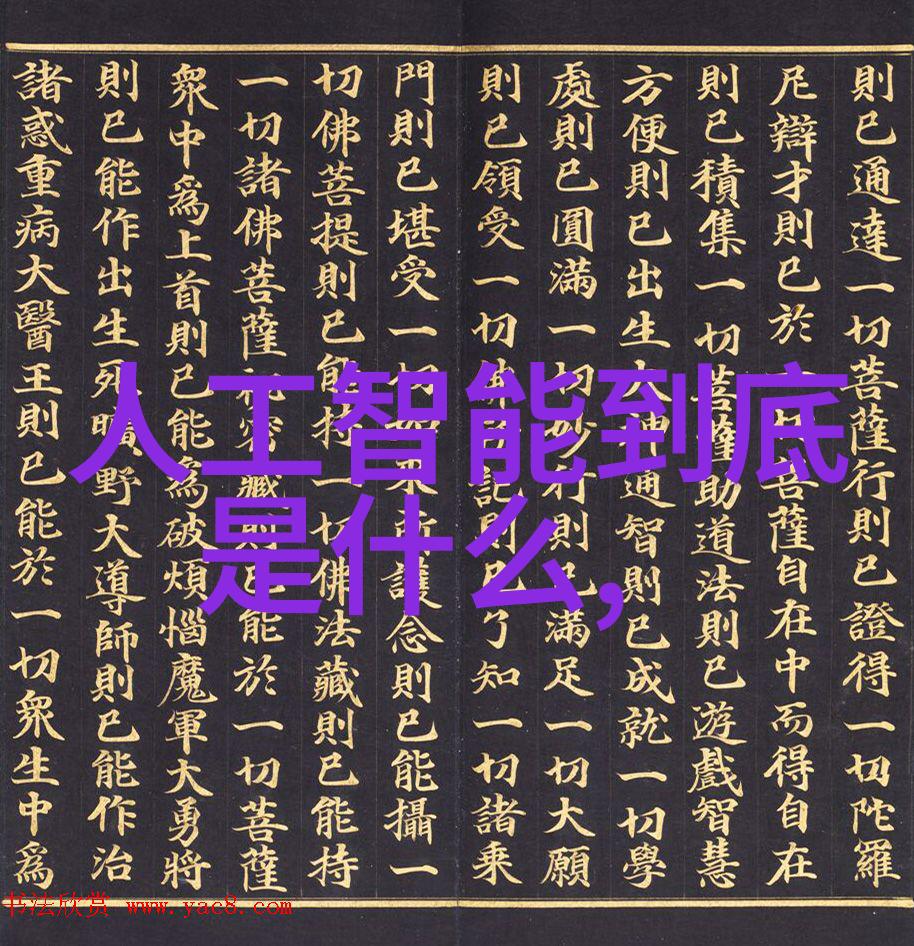 則已通達一切菩薩行則已證得一切陀羅
尼辯才則已於一切菩薩自在中而得自在
則已積集一切菩薩助道法則已遊戲智慧
方便則已出生大神通智則已成就一切學
處則已圓滿一切妙行則已滿足一切大願
則已領受一切佛記則已了知一切諸乘
門則已堪受一切如來所護念則已能攝一
切佛菩提則已能持一切佛法藏則已能持
一切諸佛菩薩祕密藏則已能於一切菩薩
衆中爲上首則已能爲破煩惱魔軍大勇將
則已能作出生死曠野大導師則已能作治
諸惑重病大醫王則已能於一切衆生中爲
人工智能到底
是什么,
书法欣赏 www.yac8.com